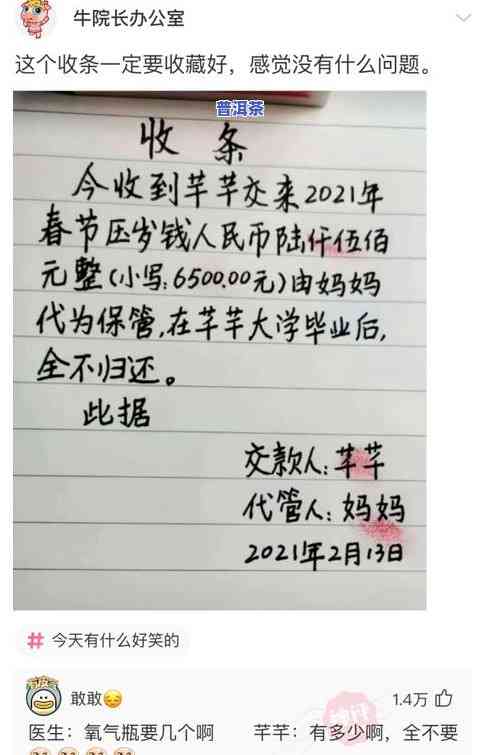 牛院长办公室
这个收条一定要收藏好，感觉没有什么问题。
普洱茶
收 条
今收到芊芊交来2021年
春节压岁钱人民币陆仟伍佰
元整(小写:6500.00元)由妈妈
代为保管,在芊芊大学毕业后,
全不归还。
此据
交款人:芊芊
代管人:妈妈
2021年2月13日
# 今天有什么好笑的
敢敢 1.4万
神评
医生：氧气瓶要几个啊 芊芊：有多少啊，全不要